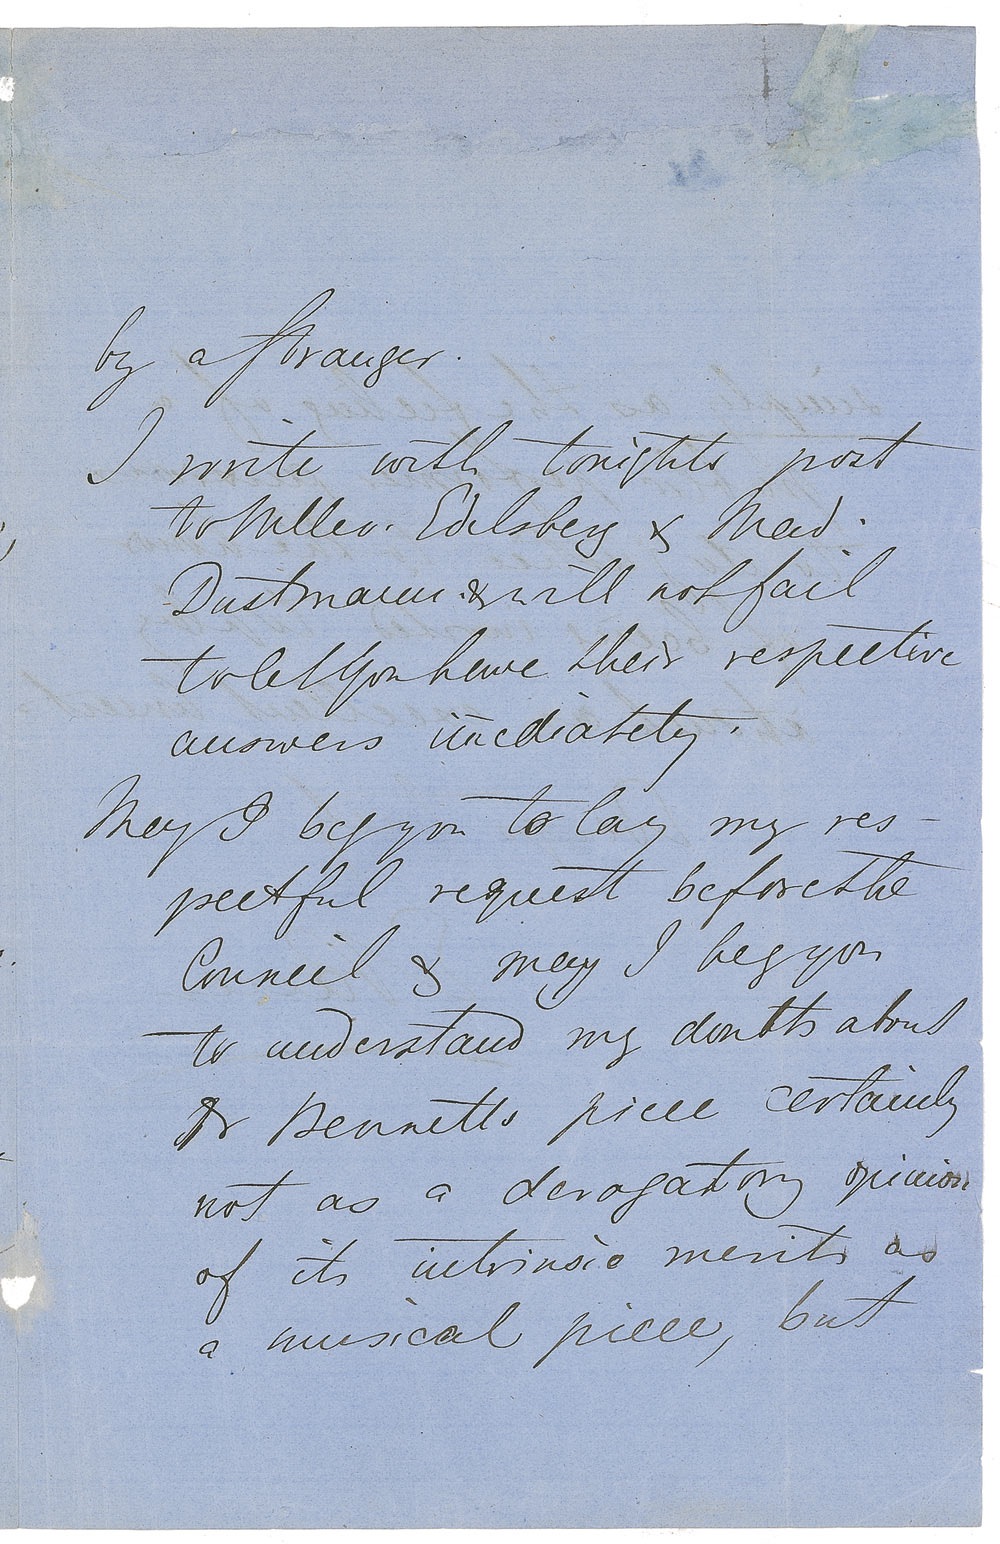 by a stranger.
I write with tonights post
to Mlles. Edelsberg & Mad.
Dustmann. & will not fail
to let you have their respective
answers imediately.
May I beg you to lay my res-
pectful request before the
Council & may I beg you
to understand my doubts about
Dr Bennetts piece certainly
not as a derogatory opinion
of its intrinsic merits as
a musical piece, but